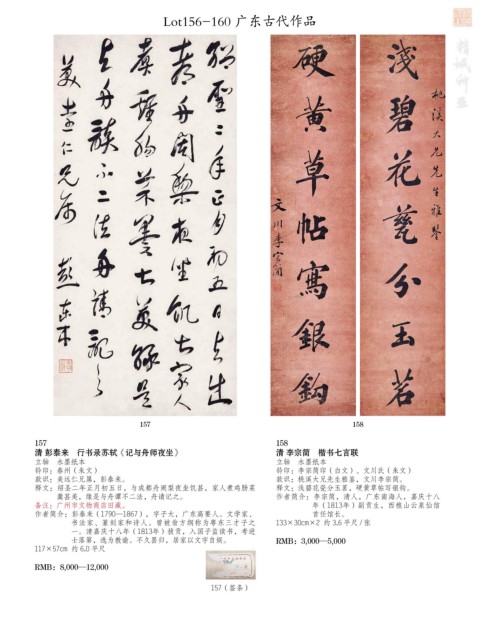 Lot156-160 广东古代作品
精诚所至
绍圣二年正月初五日与成
都舟阇黎夜坐饥甚家人
煮鸡肠菜羹甚美缘是
与舟谈不二法舟请记之
美远仁兄属 彭泰来
浅碧花瓷分玉茗
桃溪大兄先生雅鉴
硬黄草帖写银钩
文川李宗简
157
158
157
清 彭泰来 行书录苏轼《记与舟师夜坐》
立轴 水墨纸本
钤印：泰州（朱文）
款识：美远仁兄属，彭泰来。
释文：绍圣二年正月初五日，与成都舟阇黎夜坐饥甚，家人煮鸡肠菜
羹甚美，缘是与舟谭不二法，舟请记之。
备注：广州市文物商店旧藏。
作者简介：彭泰来（1790—1867），字子大，广东高要人。文学家、
书法家、篆刻家和诗人，曾被俭方纲称为粤东三才子之
一。清嘉庆十八年（1813年）拔贡，入国子监读书，考进
士落第，选为教谕。不久即归，居家以文字自娱。
117×57cm 约 6.0 平尺
RMB：8,000—12,000
157（签条）
158
清 李宗简 楷书七言联
立轴 水墨纸本
钤印：李宗简印（白文）、文川氏（朱文）
款识：桃溪大兄先生雅鉴，文川李宗简。
释文：浅碧花瓷分玉茗，硬黄草帖写银钩。
作者简介：李宗简，清人，广东南海人，嘉庆十八
年（1813年）副贡生，西樵山云泉仙馆
首任馆长。
133×30cm×2 约 3.6 平尺 / 张
RMB：3,000—5,000